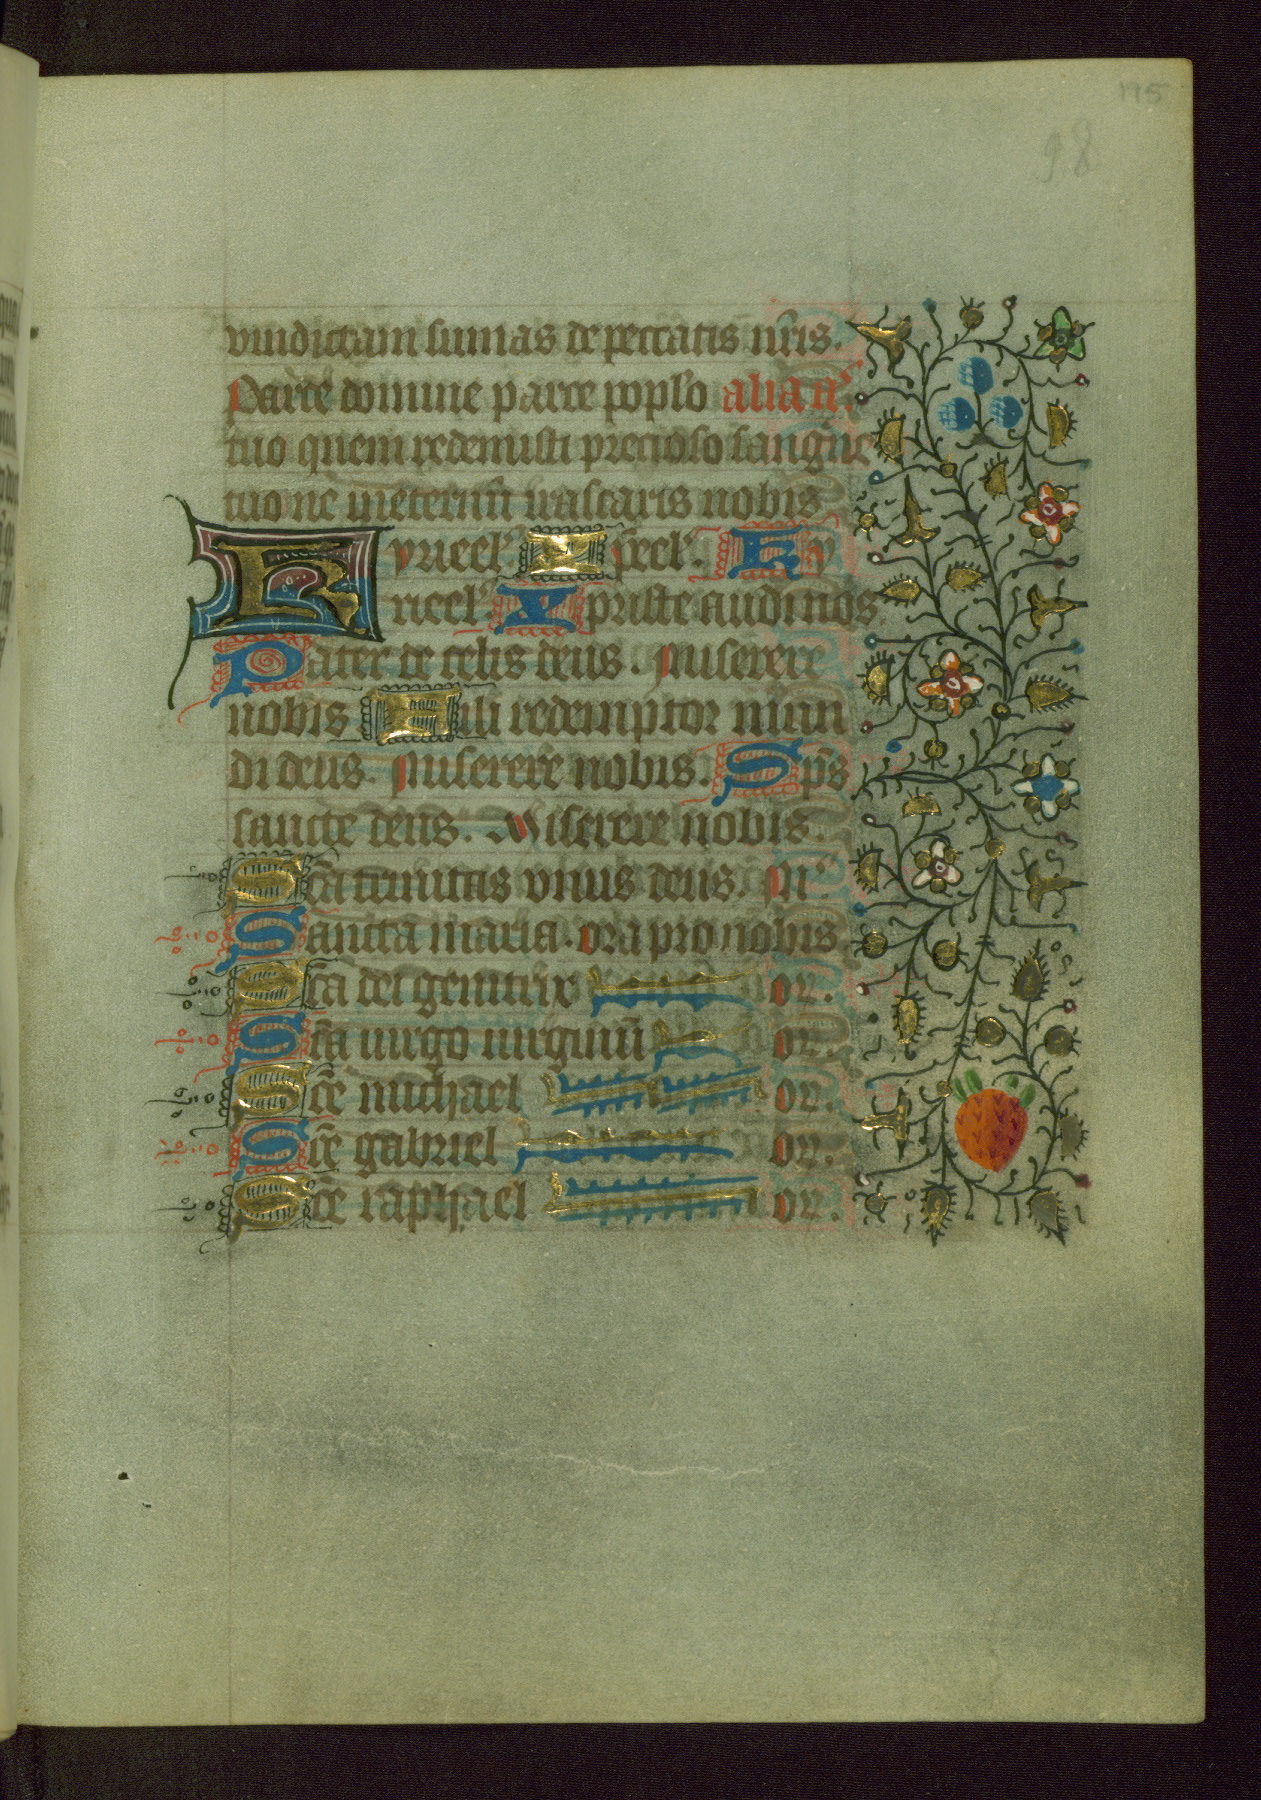 115
98
vindictam sumas de peccatis nr̄is.
Parce domine parce poplo alia añ.
tuo quem redemisti precioso sanguīe
tuo ne ineternū irascaris nobis
Kyrieel'. Xp̄eel'. Ky
rieel' Xpriste audi nos
Pater de celis deus. Miserere
nobis Fili redemptor mun
di deus. Miserere nobis. Sp̄s
sancte deus. Miserere nobis.
Sc̄a trinitas unus deus. M'.
Sancta maria. ora pro nobis
Sc̄a dei genitrix or.
Sc̄a uirgo uirginū or.
Sc̄e michael or.
Sc̄e gabriel or.
Sc̄e raphael or.